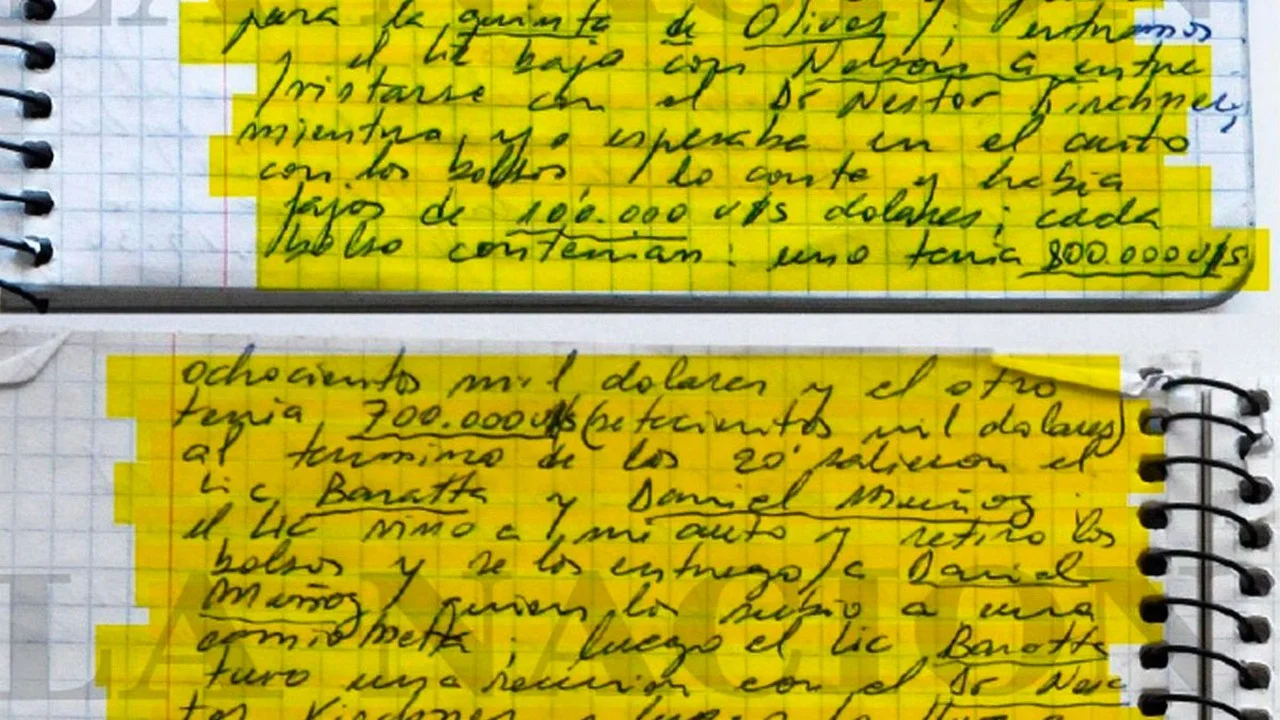 para la quinta de Olivos ; entramos
y el Lic bajo con Nelson a entre
/vistarse con el Dr Nestor Kirchner,
mientra yo esperaba en el auto
con los bolsos / lo conte y habia
fajos de 100.000 u$s dolares; cada
bolso contenian. uno tenia 800.000 u$s
ochocientos mil dolares y el otro
tenia 700.000 u$s (setecientos mil dolares)
al termino de los 20' salieron el
Lic Baratta y Daniel Muñoz.
el Lic vino a mi auto y retiro los
bolsos y se los entrego a Daniel
Muñoz quien los subio a una
camioneta ; luego el Lic Baratta
tuvo una reunion con el Dr Nes
tor Kirchner
LA NACION